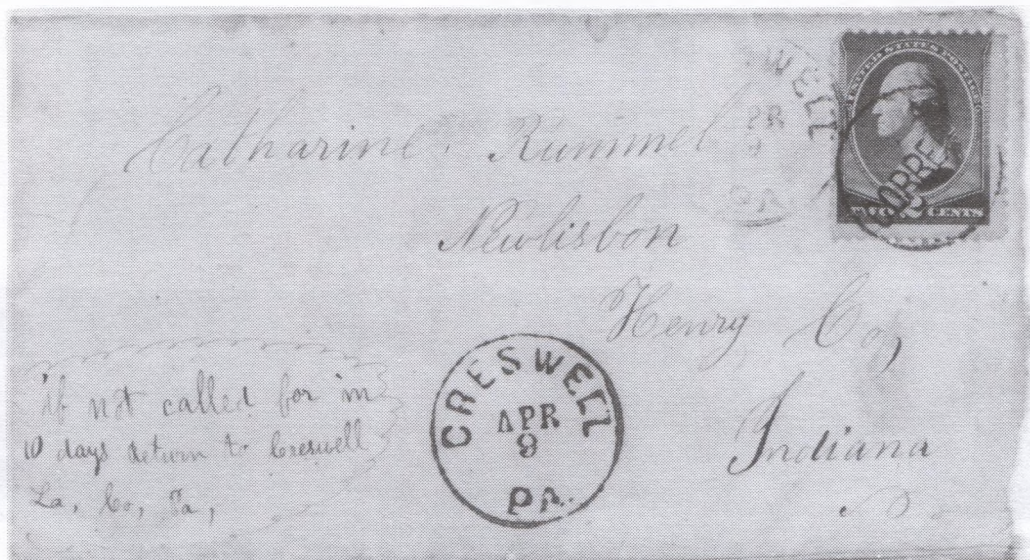 UNITED STATES POSTAGE
TWO 2 CENTS
CORRE
WELL
PR
9
PA
Catharine Rummel
Newlisbon
Henry Co,
Indiana
CRESWELL
APR
9
PA.
if not called for in
10 days return to Creswell
La, Co, Pa,